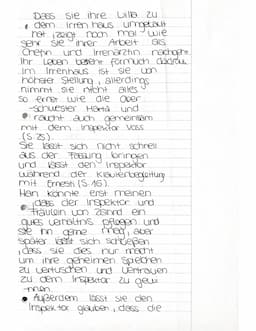 Dass sie ihre Villa zu
dem Irrenhaus umgebaut
hat, zeigt noch mal wie
sehr sie ihrer Arbeit als
Chefin und Irrenärztin nachgeht.
Ihr Leben besteht förmlich daraus.
Im Irrenhaus ist sie von
höhster Stellung, allerdings
nimmt sie nicht alles
so ernst wie die Ober
-schwester Marta und
raucht auch gemeinsam
mit dem Inspektor Voss
(S. 25).
Sie lässt sich nicht schnell
aus der Fassung bringen
und lässt den Inspektor
während der Klavierbegleitung
mit Ernesti (S. 16).
Man könnte erst meinen
, dass der Inspektor und
Fräulein von Zahnd ein
gutes Verhältnis pflegen und
sie ihn gerne mag, aber
später lässt sich schließen
, dass sie dies nur macht
um ihre geheimen Spielchen
zu vertuschen und Vertrauen
zu dem Inspektor zu gewi
-nnen.
Außerdem lässt sie den
Inspektor glauben, dass die